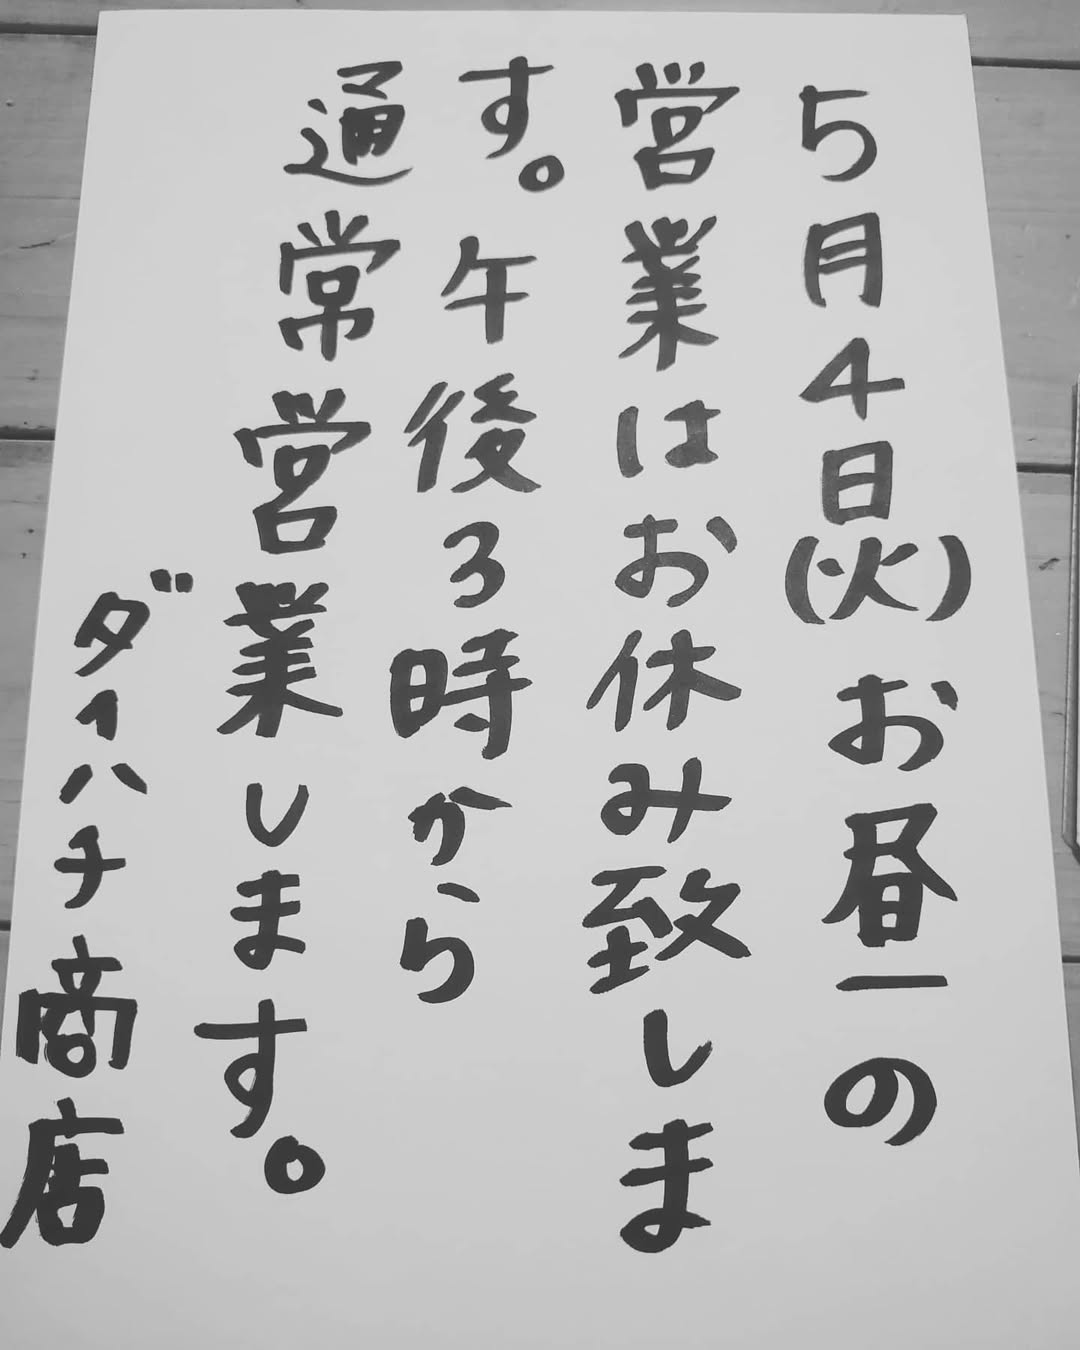 5月4日(火)お昼ーの
営業はお休み致しま
す。午後3時から
通常営業します。
ダイハチ商店